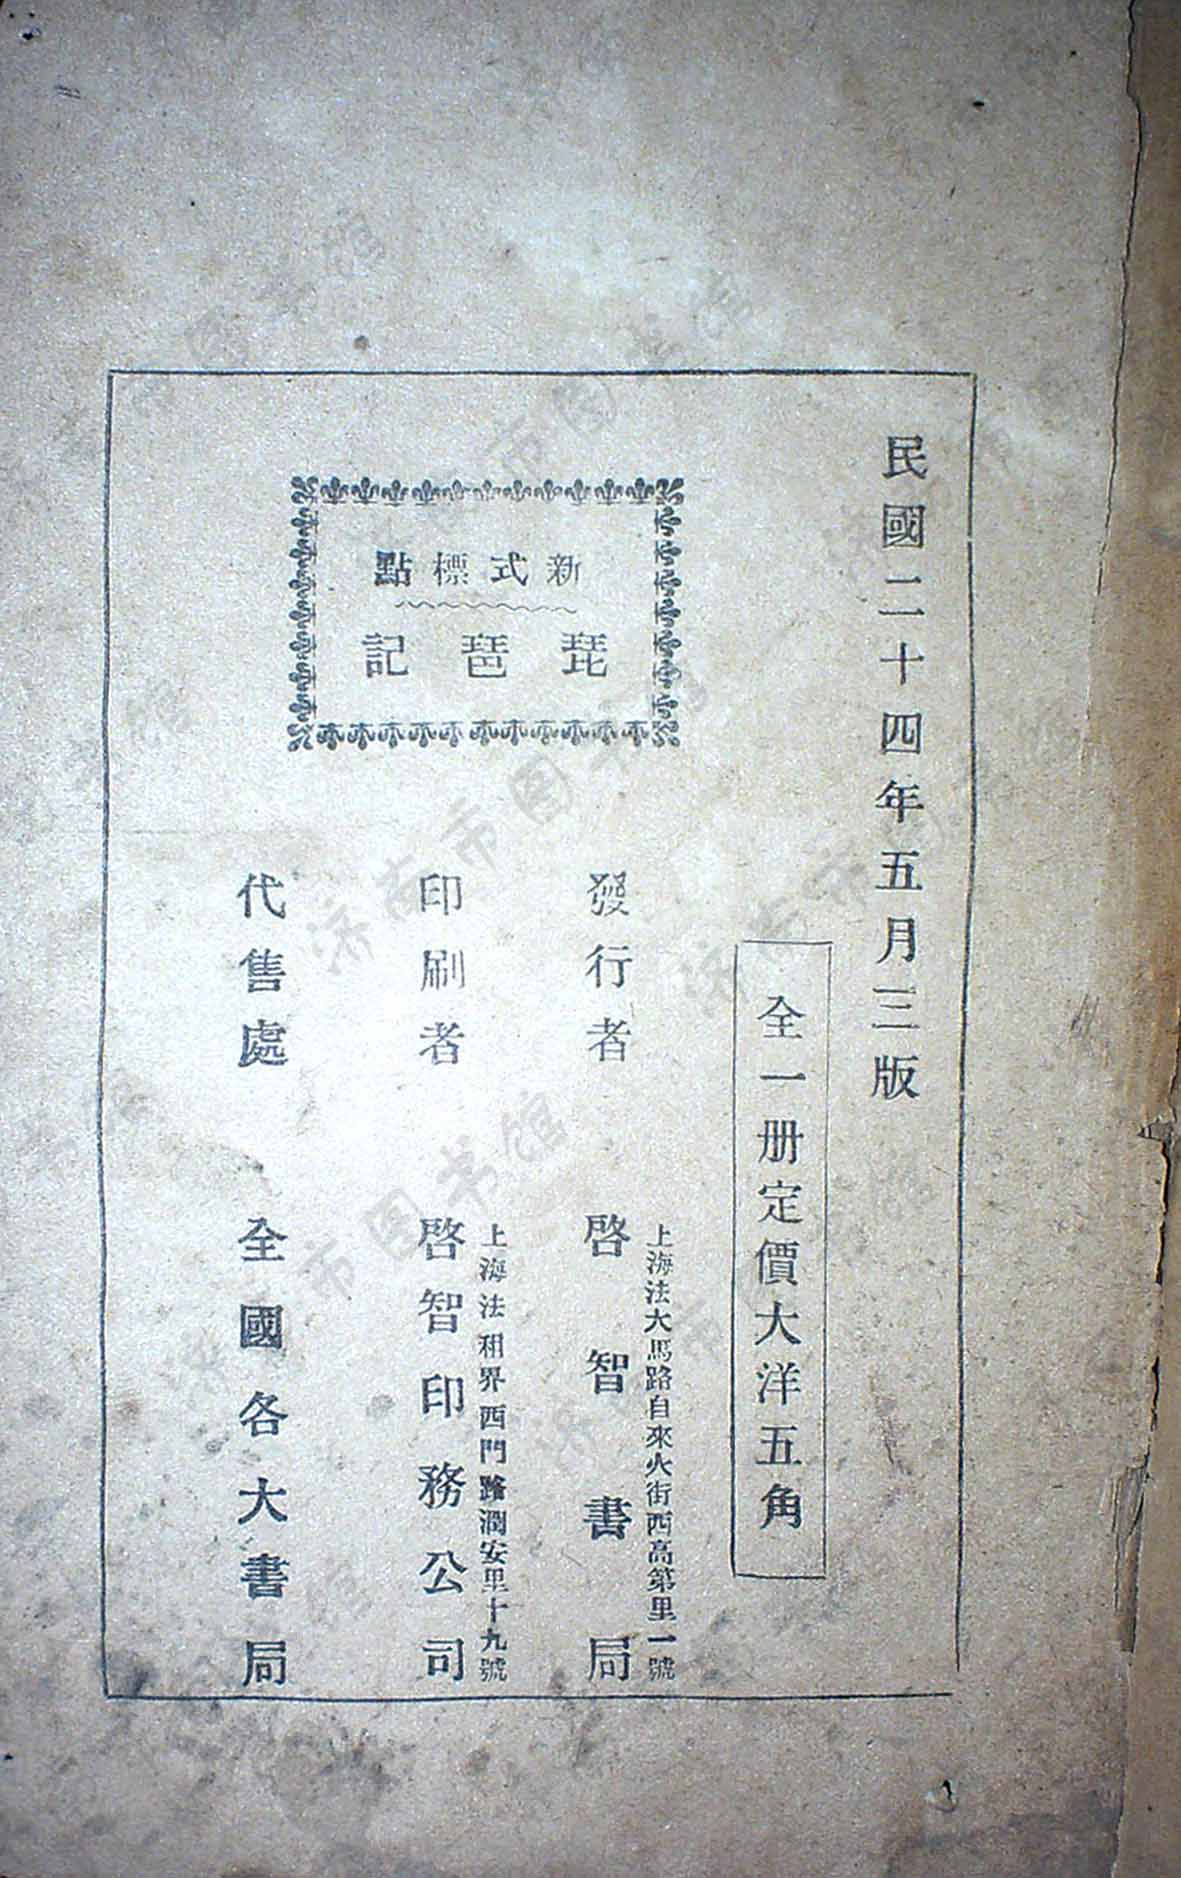 民國二十四年五月三版
全一册定價大洋五角
新式標點
琵琶記
發行者
上海法大馬路自來火街西高第里一號
啓智書局
印刷者
上海法租界西門路潤安里十九號
啓智印務公司
代售處
全國各大書局
济南市图书馆